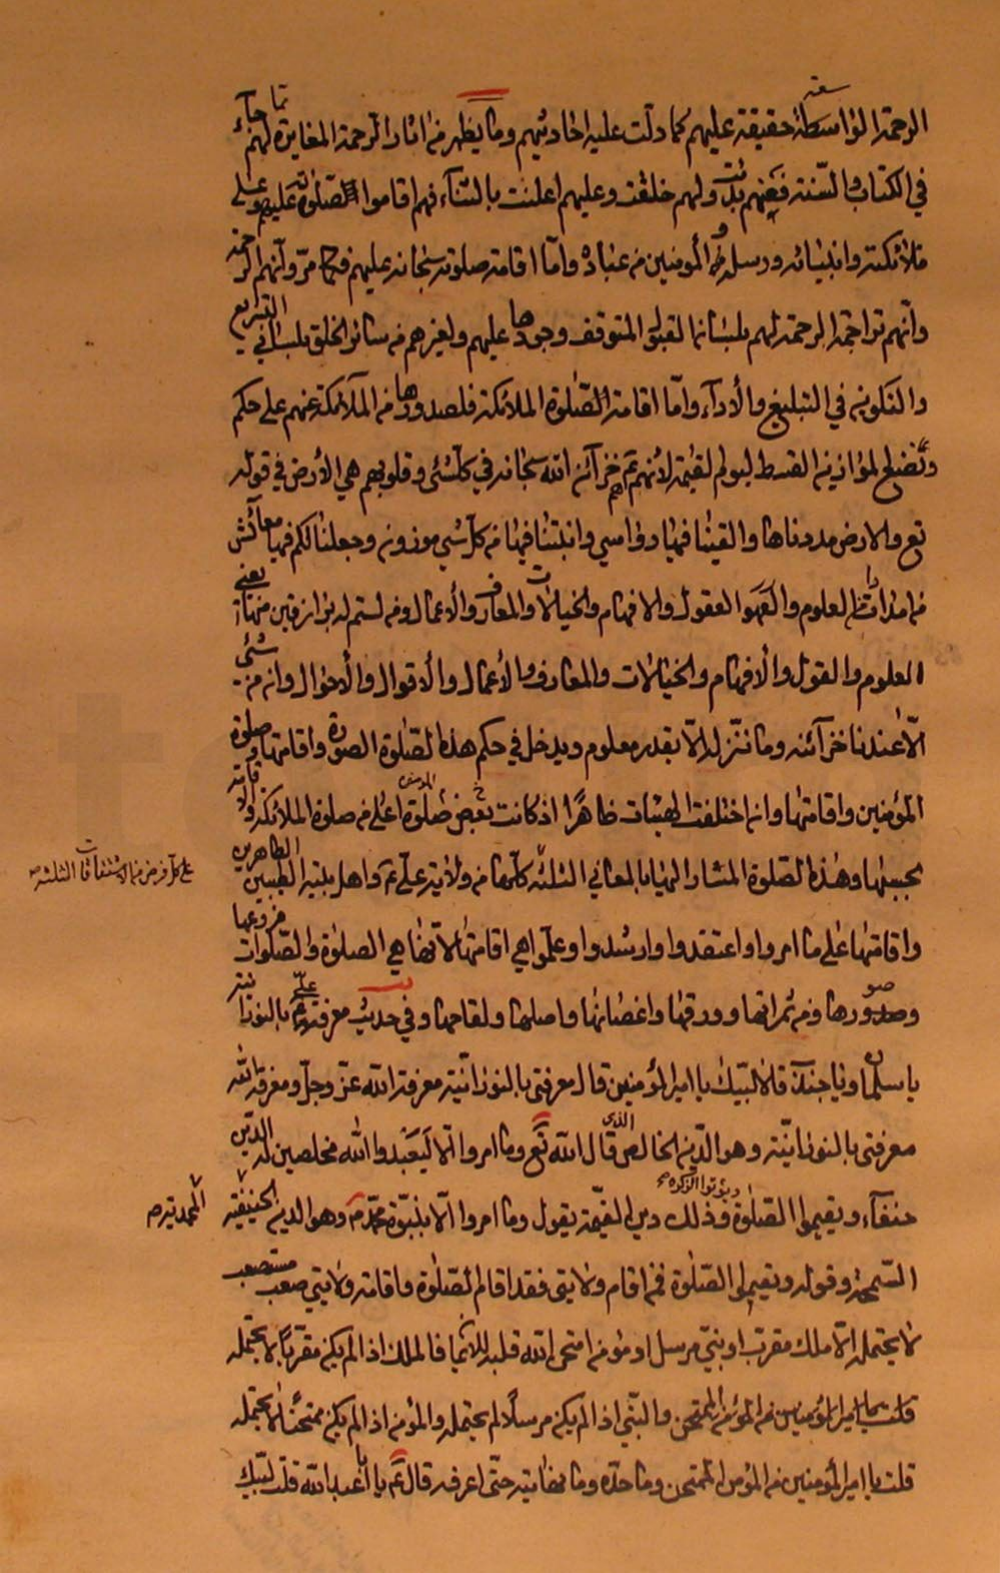 الرحمة الواسطة حقيقة عليهم كما دلت عليه احاديثهم وما يظهر من اثار الرحمة المغايرة لهم مما جاء
في الكتاب والسنة فعنهم بدئت ولهم خلقت وعليهم اعلنت بالثناء فهم اقاموا الصلوة عليهم وعلى
ملائكته وانبيائه ورسله والمؤمنين من عباده واما اقامة صلوته سبحانه عليهم فكما مر وانهم الرحمة
وانهم تراجمة الرحمة لهم بلسانها لقبول المتوقف وجودها عليهم ولغيرهم من سائر الخلق بلساني التشريع
والتكوين في التبليغ والأداء واما اقامة الصلوة الملائكة فلصدورها من الملائكة عنهم على حكم
وضع لموازين القسط ليوم القيمة لانهم خزائن الله سبحانه في كل شئ وقلوبهم هي الأرض في قوله
تع والارض مددناها والقينا فيها رواسي وانبتنا فيها من كل شئ موزون وجعلنا لكم فيها معائش
من العلوم والعقول والافهام والخيالات والمعارف والأعمال ومن لستم له برازقين يعني
العلوم والعقول والأفهام والخيالات والمعارف والأعمال والأقوال والأحوال وان من شئ
الا عندنا خزائنه وما ننزله الا بقدر معلوم ويدخل في حكم هذه الصلوة الصورة واقامتها صلوة
المؤمنين واقامتها وان اختلفت الهيئات ظاهرا اذ كانت بعض صلوة المؤمنين اعلى من صلوة الملائكة
بحسبها وهذه الصلوة المشار اليها بالمعاني الثلثة كلها من ولاية علي ع واهل بيته الطيبين الطاهرين
على كل فرض من الاشتقاقات الثلثة صح
واقامتها على ما امروا واعتقدوا وارشدوا وعلموا هي اقامتها لانها هي الصلوة والصلوات فروعها
وصدورها ومن ثمراتها وورقها واغصانها واصلها ولقاحها وفي حديث معرفة علي ع بالنورانية
يا سلمان ويا جندب قالا لبيك يا امير المؤمنين قال معرفتي بالنورانية معرفة الله عز وجل ومعرفة الله
معرفتي بالنورانية وهو الدين الخالص الذي قال الله تع وما امروا الا ليعبدوا الله مخلصين له الدين
حنفاء ويقيموا الصلوة ويؤتوا الزكوة وذلك دين القيمة يقول وما امروا الا بنبوة محمد ص وهو الدين الحنيفية
المحمدية صح
السمحة وقوله ويقيموا الصلوة فمن اقام ولايتي فقد اقام الصلوة واقامة ولايتي صعب مستصعب
لا يحتمله الا ملك مقرب او نبي مرسل او مؤمن امتحن الله قلبه للايمان فالملك اذا لم يكن مقربا لا يحتمله
والنبي اذا لم يكن مرسلا لم يحتمله والمؤمن اذا لم يكن ممتحنا لا يحتمله
قلت يا امير المؤمنين من المؤمن الممتحن وما حده وما نهايته حتى اعرفه قال ع يا ابا عبد الله قلت لبيك